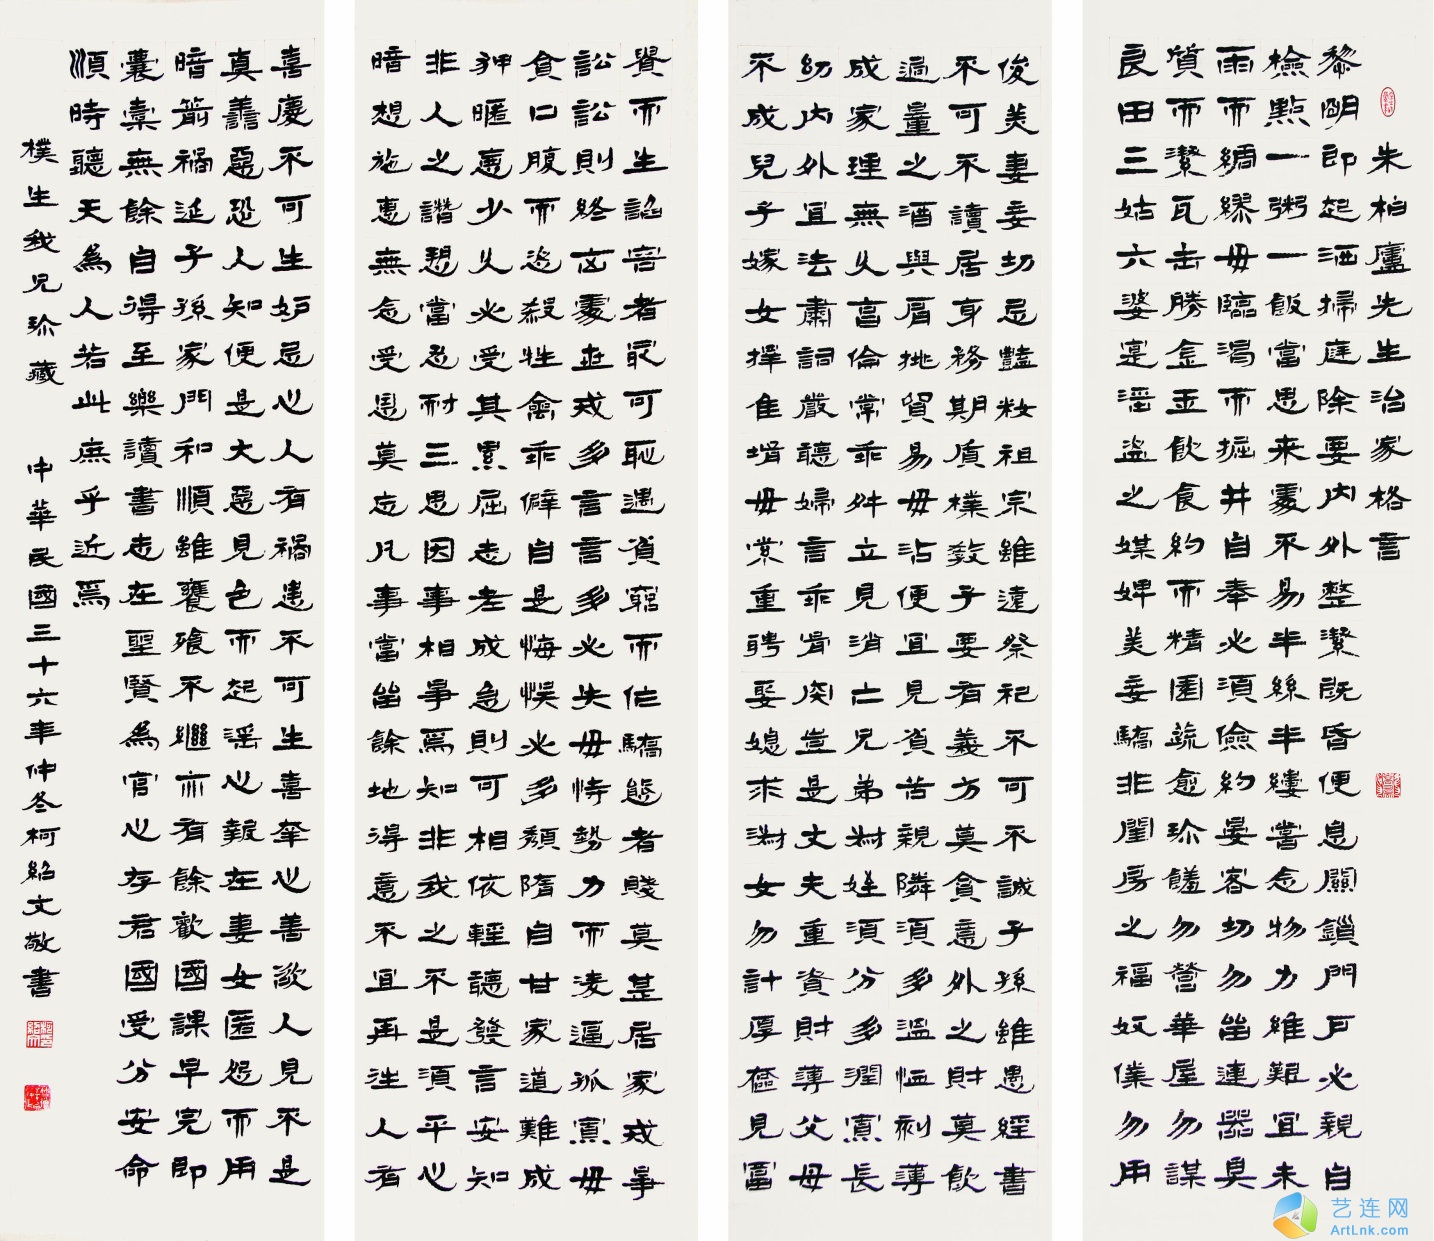 朱柏廬先生治家格言
黎明即起洒掃庭除要內外整潔既昏便息關鎖門戶必親自
檢點一粥一飯當思來處不易半絲半縷嘗念物力維艱宜未
雨而綢繆毋臨渴而掘井自奉必須儉約晏客切勿留連器具
質而潔瓦缶勝金玉飲食約而精園蔬愈珍饈勿營華屋勿謀
良田三姑六婆寔淫盜之媒婢美妾驕非閨房之福奴僕勿用
俊美妻妾切忌豔粧祖宗雖遠祭祀不可不誠子孫雖愚經書
不可不讀居身務期質樸教子要有義方莫貪意外之財莫飲
過量之酒與肩挑貿易毋沾便宜見貧苦親隣須多溫恤刻薄
成家理無久富倫常乖舛立見消亡兄弟對姪須分多潤寡長
幼內外宜法肅詞嚴聽婦言乖骨肉豈是丈夫重資財薄父母
不成兒子嫁女擇佳壻毋索重聘娶媳求淑女勿計厚奩見富
貴而生諂容者最可恥遇貧窮而作驕態者賤莫甚居家戒爭
訟訟則終凶處世戒多言言多必失毋恃勢力而凌逼孤寡毋
貪口腹而恣殺牲禽乖僻自是悔悞必多頹隋自甘家道難成
狎暱惡少久必受其累屈志老成急則可相依輕聽發言安知
非人之譖愬當忍耐三思因事相爭焉知非我之不是須平心
暗想施惠無念受恩莫忘凡事當留餘地得意不宜再往人有
喜慶不可生妒忌心人有禍患不可生喜幸心善欲人見不是
真善惡恐人知便是大惡見色而起淫心報在妻女匿怨而用
暗箭禍延子孫家門和順雖饔飧不繼亦有餘歡國課早完即
囊橐無餘自得至樂讀書志在聖賢為官心存君國受分安命
順時聽天為人若此庶乎近焉
樸生我兄珍藏 中華民國三十六年仲冬柯紹文敬書
艺连网
ArtLnk.com